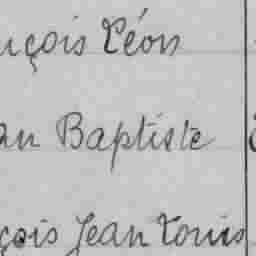 nçois Léon
an Baptiste
çois Jean Louis